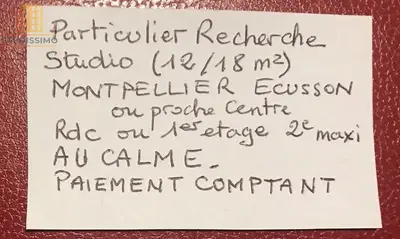 Particulier Recherche
Studio (12/18 m²)
MONTPELLIER ECUSSON
ou proche Centre
Rdc ou 1er etage 2e maxi
AU CALME.
PAIEMENT COMPTANT